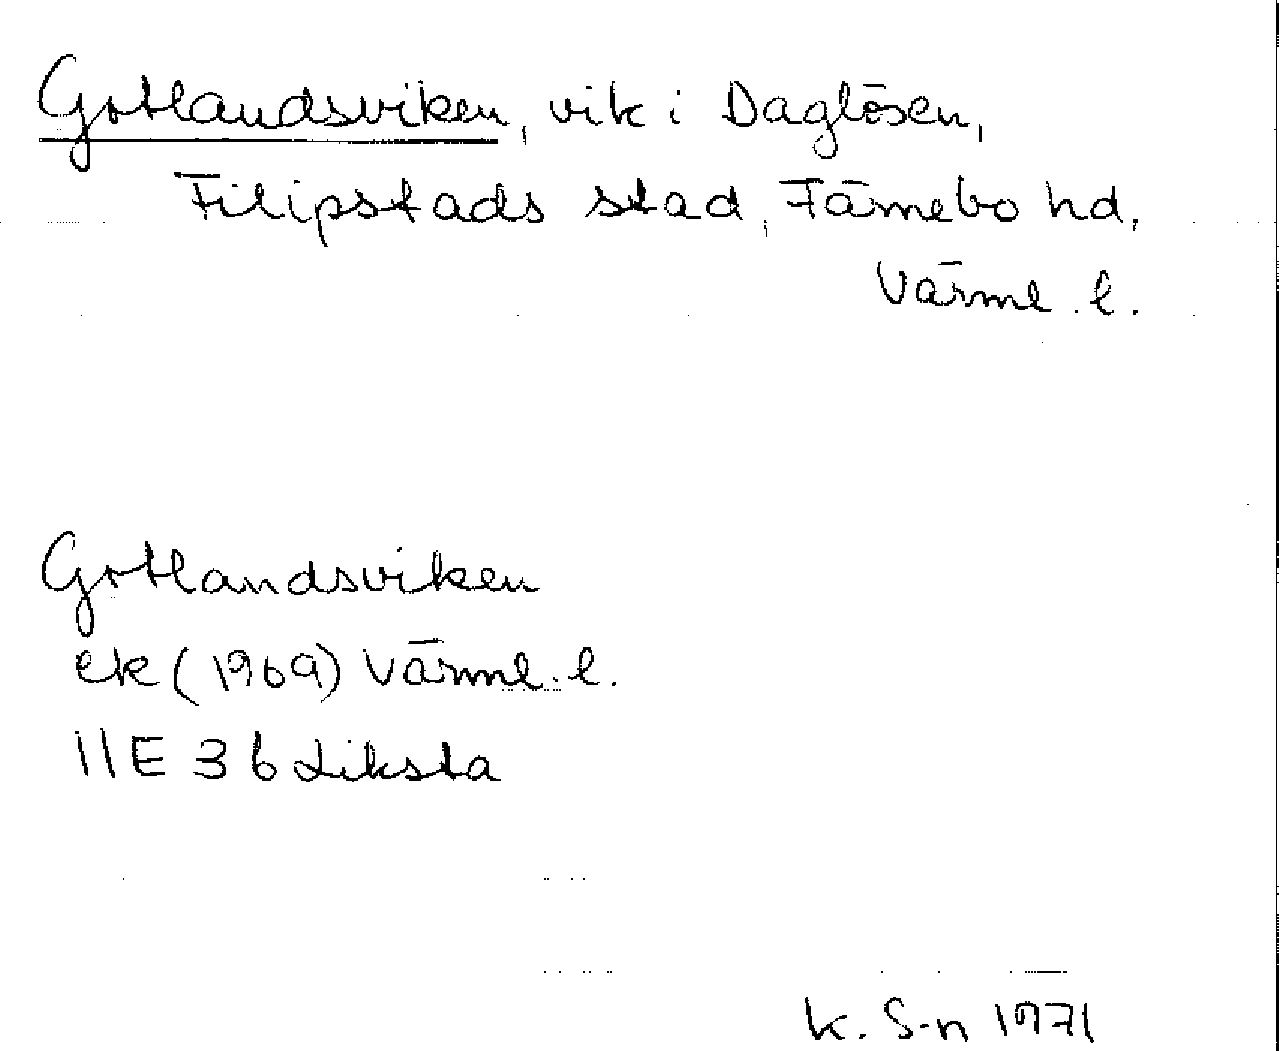 Gotlandsviken, vik i Daglösen,
Filipstads stad, Färnebo hd,
Värml. l.
Gotlandsviken
ek (1969) Värml. l.
11E 3b Liksta
K. S-n 1971